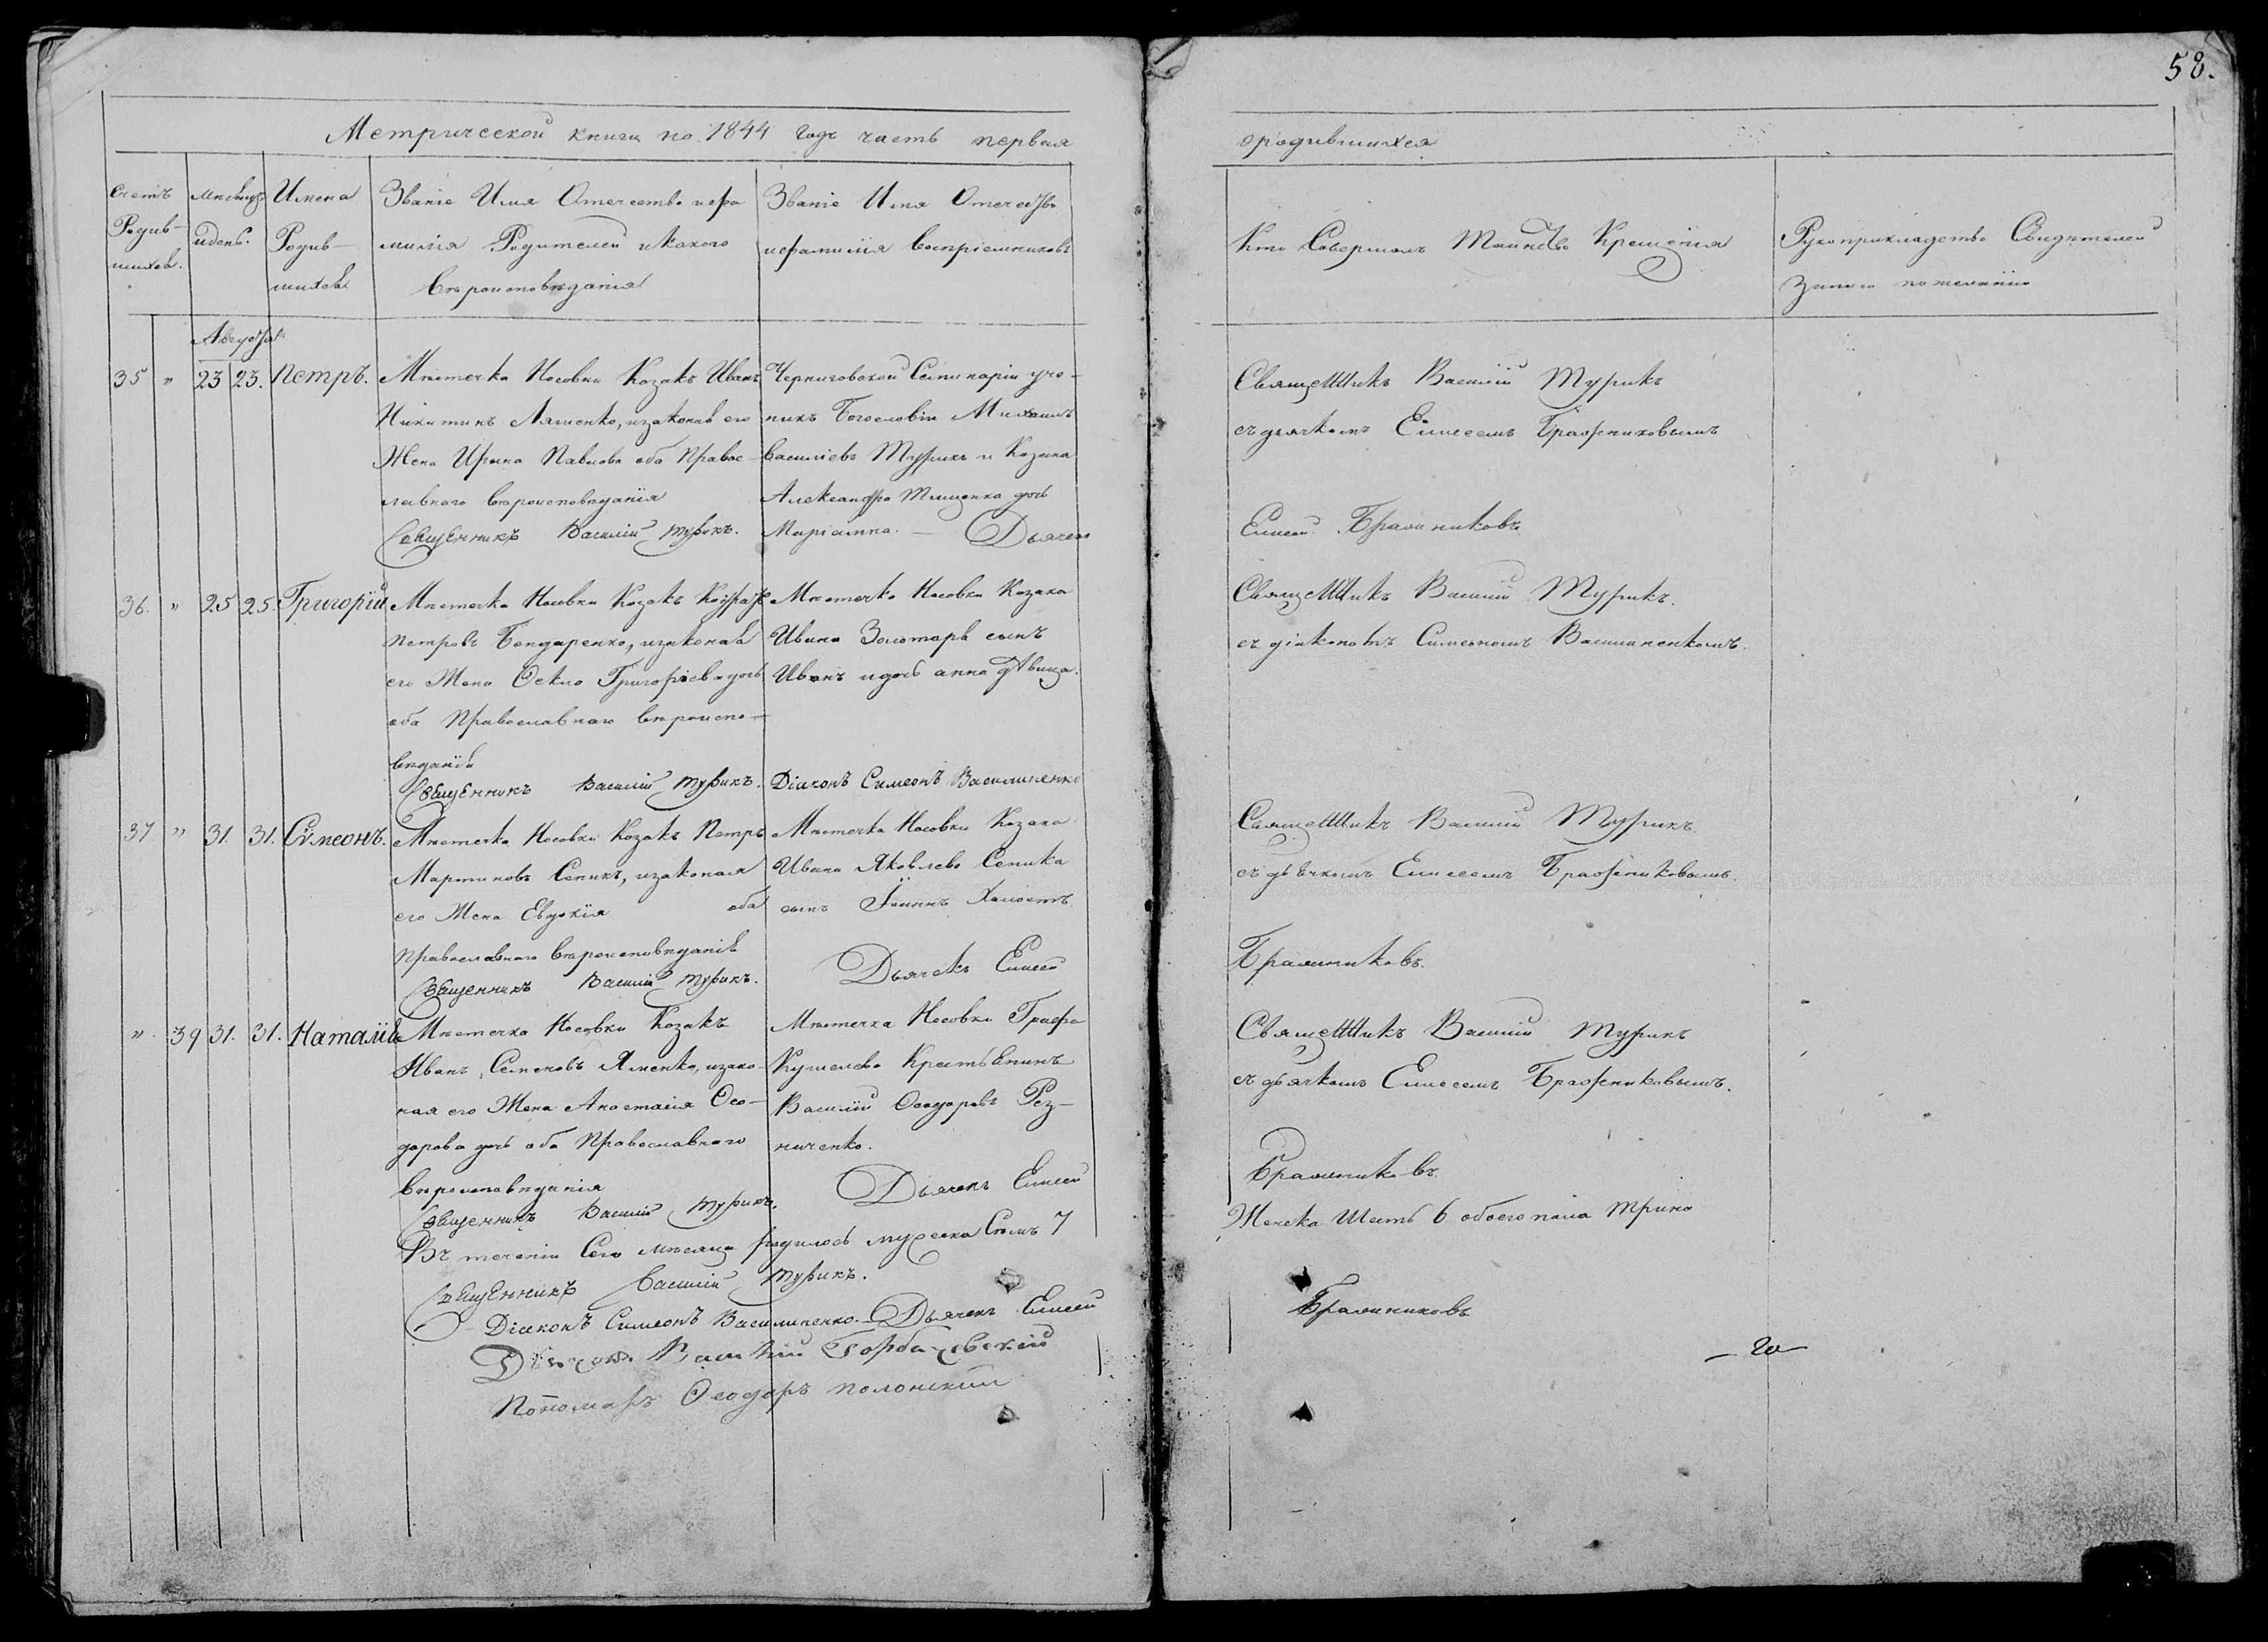 58.
Метрической книги на 1844 годъ часть первая
ородившихся
Счетъ Родив-шихся.
Мѣсяцъ идень.
Имена Родив-шихся
Званіе Имя Отечество ифа
милія Родителей икакого
Вѣроисповѣданія
Званіе Имя Отечество
ифамилія Воспріемниковъ
Кто Совершалъ Таинство Крещенія
Рукоприкладство Свидѣтелей
записи пожеланію
Августа
35 " 23 23. Петръ.
Мѣстечка Носовки Козакъ Иванъ
Никитинъ Ляшенко, изаконая его
Жена Ирина Павлова оба Правос-
лавнаго вѣроисповѣданія
Священникъ Василій Турикъ.
Черниговской Семинаріи уче-
никъ Богословіи Михаилъ
Василіевъ Турикъ и Козака
Александра Тищенка дочь
Маріамна. — Дьячекъ
Священникъ Василій Турикъ
съдьячкомъ Елисеемъ Бражниковымъ
Елисей Бражниковъ
36. " 25 25. Григорій
Мѣстечка Носовки Козакъ Кондратъ
Петровъ Бондаренко, изаконая
его Жена Фекла Григоріева дочь
оба Православнаго вѣроиспо-
вѣданія
Священникъ Василій Турикъ.
Мѣстечка Носовки Козака
Ивана Золотаря сынъ
Иванъ идочь анна дѣвица.
Діаконъ Симеонъ Василиненко
Священникъ Василій Турикъ.
съ діакономъ Симеономъ Василиненкомъ.
37 " 31. 31. Симеонъ.
Мѣстечка Носовки Козакъ Петръ
Мартиновъ Сепикъ, изаконая
его Жена Евдокія оба
Православнаго вѣроисповѣданія
Священникъ Василій Турикъ.
Мѣстечка Носовки Козака
Ивана Яковлева Сепика
сынъ Іоаннъ Холостъ
Дьячекъ Елисей
Священникъ Василій Турикъ
съдьячкомъ Елисеемъ Бражниковымъ.
Бражниковъ.
" 39 31. 31. Наталія
Мѣстечка Носовки Козакъ
Иванъ Семеновъ Яменко, изако-
ная его Жена Анастасія Фео-
дорова дочь оба Православнаго
вѣроисповѣданія
Священникъ Василій Турикъ.
Мѣстечка Носовки Графа
Кушелева Крестьянинъ
Василій Феодоровъ Рез-
ниченко.
Дьячекъ Елисей
Священникъ Василій Турикъ
съдьячкомъ Елисеемъ Бражниковымъ.
Бражниковъ.
Въ теченіи Сего мѣсяца родилось мужеска Семь 7
Женска Шесть 6 обоего пола трина
Священникъ Василій Турикъ.
Діаконъ Симеонъ Василиненко. — Дьячекъ Елисей
Бражниковъ
Дьячокъ Василій Горбачевскій
Пономарь Феодоръ Полонскій